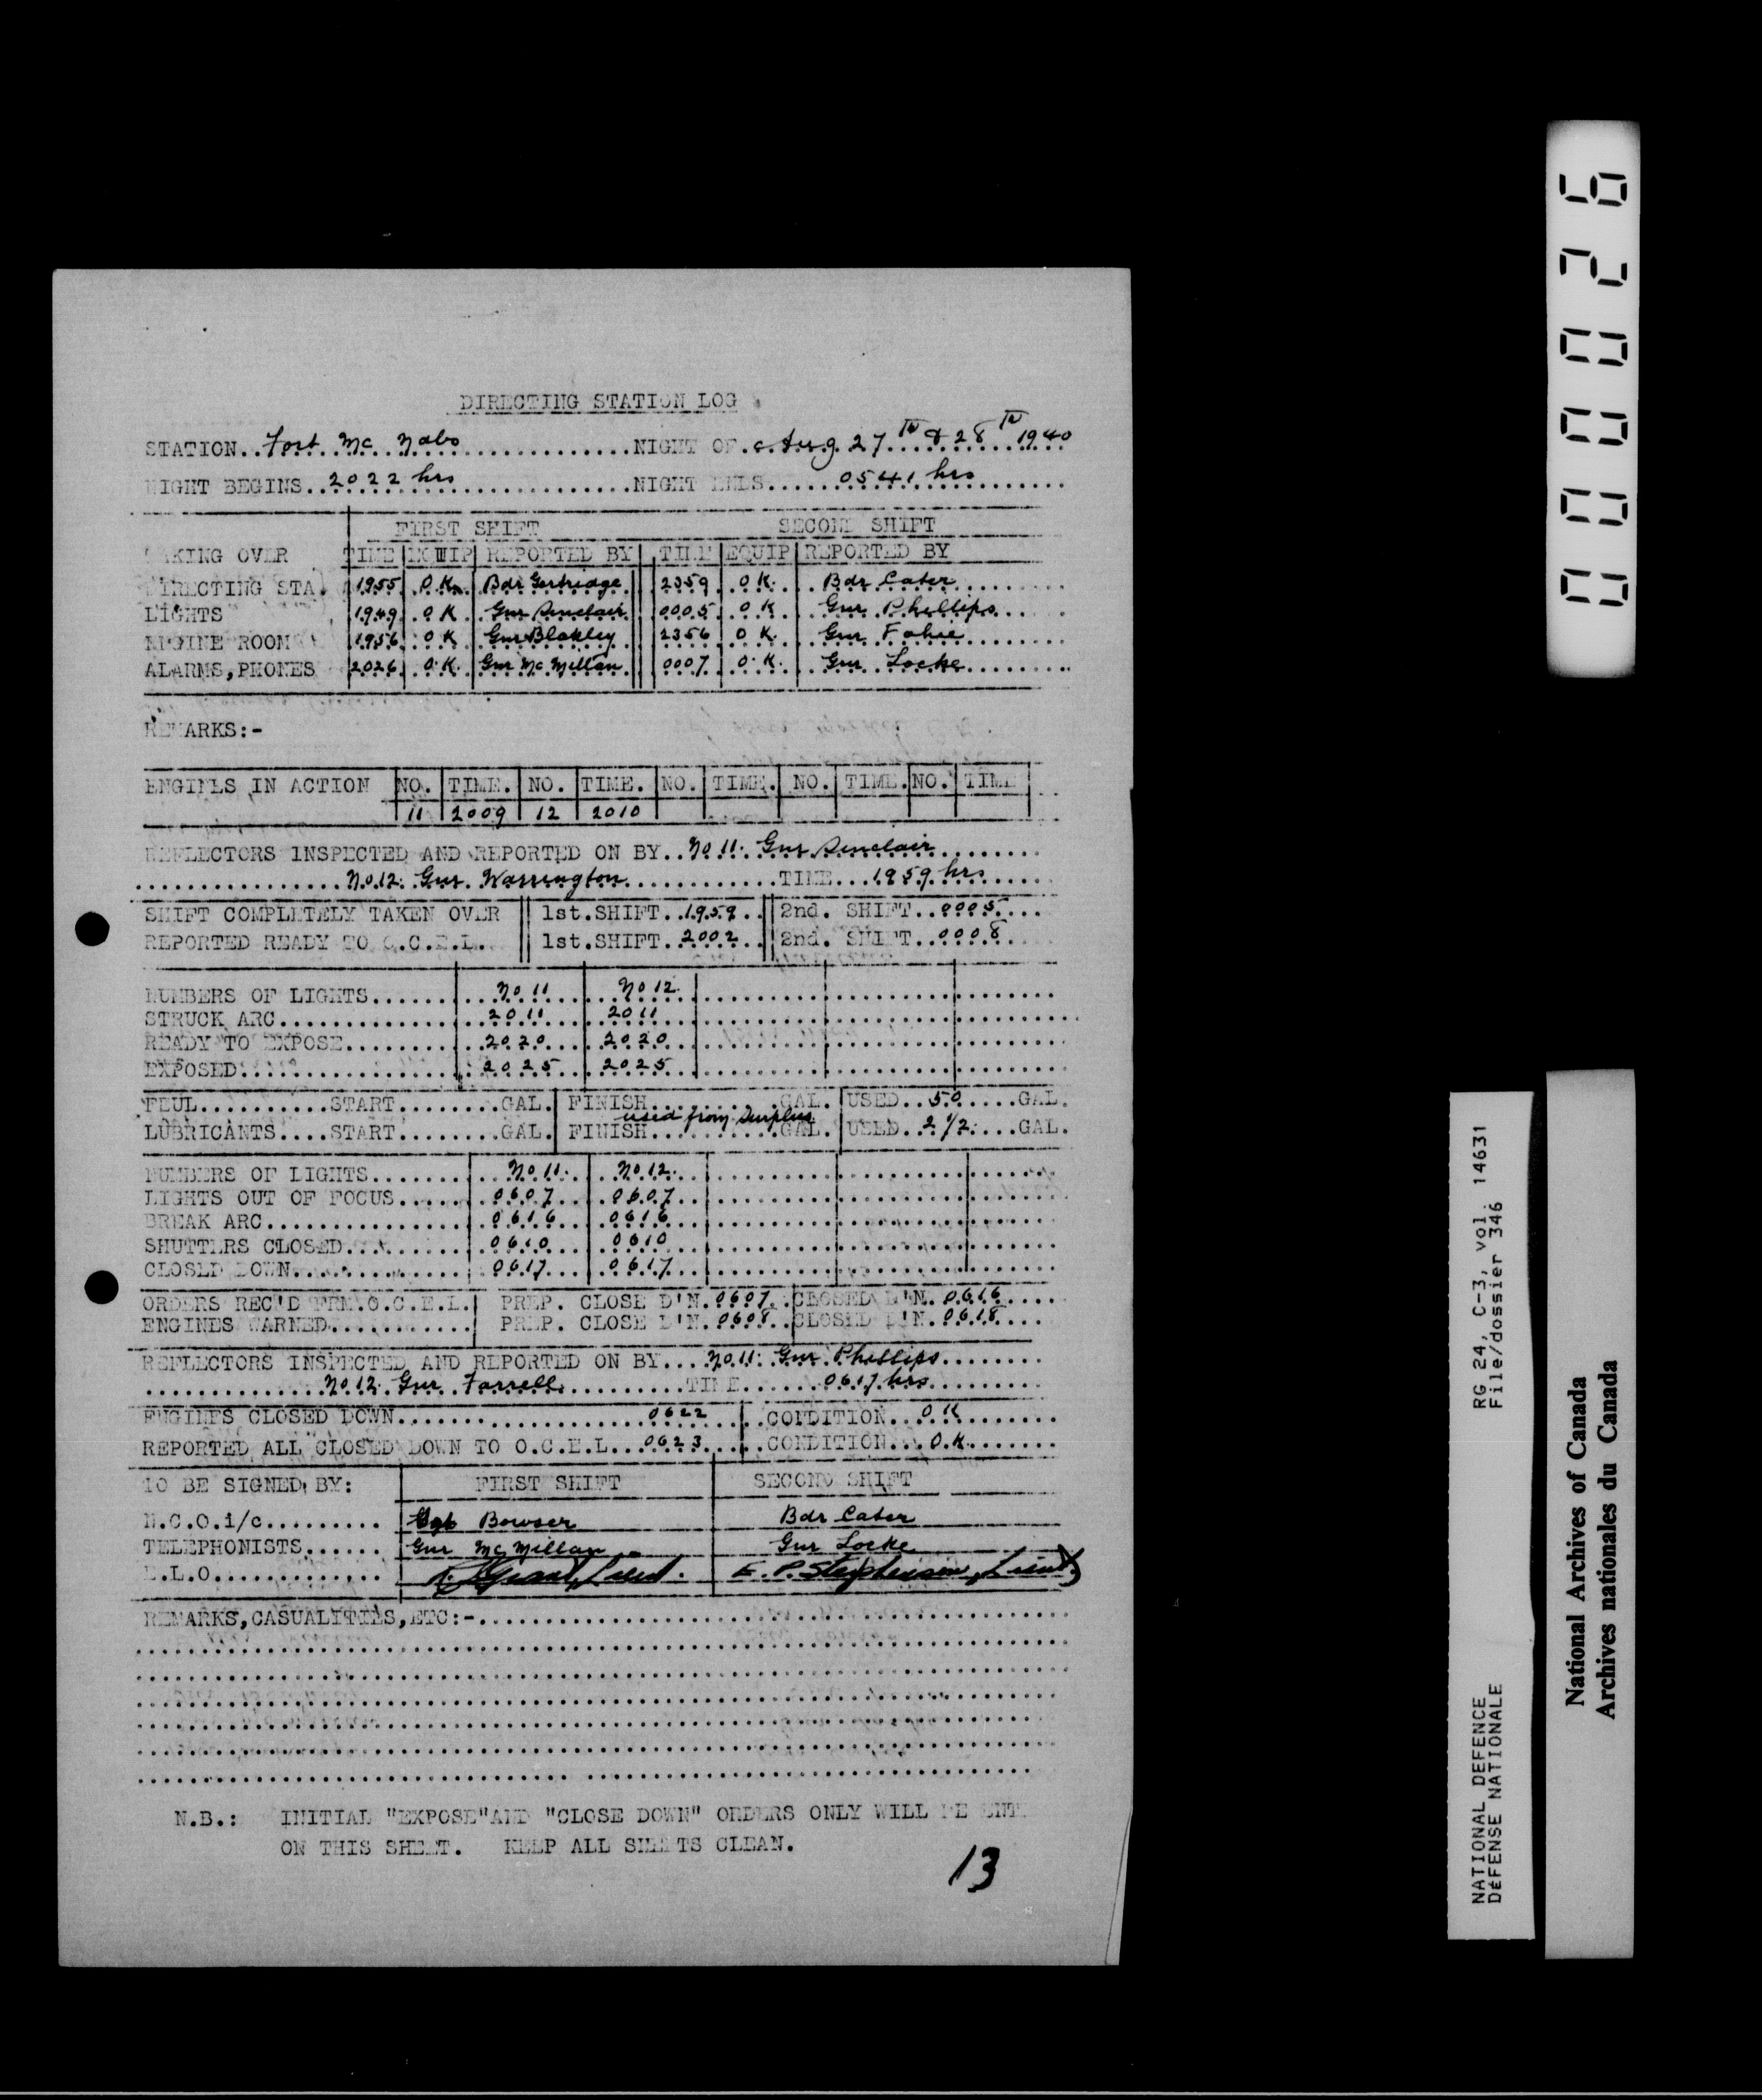 DIRECTING STATION LOG
STATION..Fort Mc Nabs NIGHT OF Aug 27th & 28th 1940
NIGHT BEGINS..2022 hrs NIGHT ENDS 0541 hrs
FIRST SHIFT SECOND SHIFT
TAKING OVER TIME EQUIP REPORTED BY TIME EQUIP REPORTED BY
DIRECTING STA. 1955 O K Bdr Gertridge 2359 O K. Bdr Cater
LIGHTS 1949 O K Gnr Sinclair 0005 O K Gnr Phillips
ENGINE ROOM 1956 O K Gnr Blakley 2356 O K. Gnr Fahie
ALARMS, PHONES 2026 O.K. Gnr Mc Millan 0007 O.K. Gnr Locke
REMARKS:-
ENGINES IN ACTION NO. TIME. NO. TIME. NO. TIME. NO. TIME. NO. TIME
11 2009 12 2010
REFLECTORS INSPECTED AND REPORTED ON BY..No 11. Gnr Sinclair
No 12. Gnr Warrington TIME...1959 hrs
SHIFT COMPLETELY TAKEN OVER 1st.SHIFT..1959.. 2nd. SHIFT..0005
REPORTED READY TO O.C.E.L. 1st.SHIFT..2002.. 2nd. SHIFT..0008
NUMBERS OF LIGHTS No 11 No 12.
STRUCK ARC 2011 2011
READY TO EXPOSE 2020 2020
EXPOSED 2025 2025
FEUL..........START........GAL. FINISH..........GAL. USED..50.....GAL.
used from Surplus
LUBRICANTS....START........GAL. FINISH..........GAL. USED..2 1/2....GAL.
NUMBERS OF LIGHTS No 11. No 12.
LIGHTS OUT OF FOCUS 0607 0607
BREAK ARC 0616 0616
SHUTTERS CLOSED 0610 0610
CLOSED DOWN 0617 0617
ORDERS REC'D FRM.O.C.E.L. PREP. CLOSE D'N.0607..CLOSED D'N.0616
ENGINES WARNED PREP. CLOSE D'N.0608..CLOSED D'N.0618
REFLECTORS INSPECTED AND REPORTED ON BY....No 11. Gnr Phillips
No 12. Gnr Farrell TIME 0617 hrs
ENGINES CLOSED DOWN 0622 CONDITION...O K
REPORTED ALL CLOSED DOWN TO O.C.E.L...0623 CONDITION...O.K.
TO BE SIGNED BY: FIRST SHIFT SECOND SHIFT
N.C.O.i/c Sgt Bowser Bdr Cater
TELEPHONISTS Gnr Mc Millan Gnr Locke
E.L.O. Grant, Lieut. E. P. Stephenson, Lieut
REMARKS,CASUALITIES,ETC:-
N.B.: INITIAL "EXPOSE"AND "CLOSE DOWN" ORDERS ONLY WILL BE ENT
ON THIS SHEET. KEEP ALL SHEETS CLEAN.
13
000026
RG 24, C-3, vol. 14631
File/dossier 346
NATIONAL DEFENCE
DÉFENSE NATIONALE
National Archives of Canada
Archives nationales du Canada